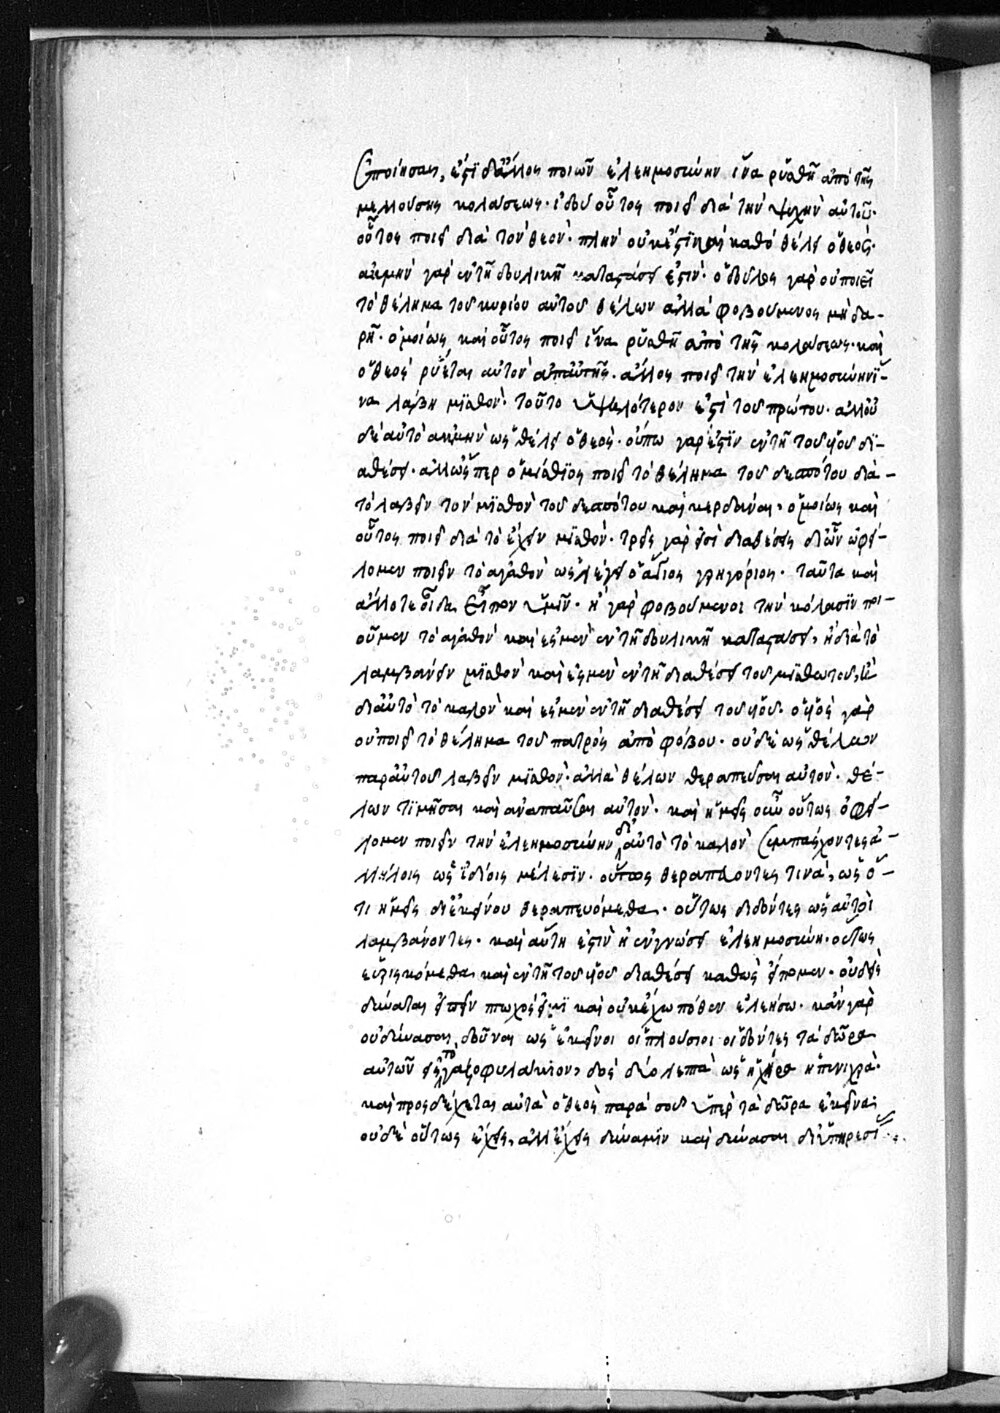 ἐποίησας, ἐστὶ δὲ ἄλλος ποιῶν ἐλεημοσύνην ἵνα ῥυσθῆ ἀπὸ τῆς
μελλούσης κολάσεως· ἰδοὺ οὗτος ποιεῖ διὰ τὴν ψυχὴν αὐτοῦ·
οὗτος ποιεῖ διὰ τὸν θεόν· πλὴν οὐκ ἐστὶν καθὸ θέλει ὁ θεός·
ἀκμὴν γὰρ ἐν τῆ δουλικῆ καταστάσει ἐστίν· ὁ δοῦλος γὰρ οὐ ποιεῖ
τὸ θέλημα τοῦ κυρίου αὐτοῦ θέλων ἀλλὰ φοβούμενος μὴ δα-
ρῆ· ὁμοίως καὶ οὗτος ποιεῖ ἵνα ῥυσθῆ ἀπὸ τῆς κολάσεως· καὶ
ὁ θεὸς ῥύεται αὐτὸν ἀπ' αὐτῆς· ἄλλος ποιεῖ τὴν ἐλεημοσύνην ἵ-
να λάβη μισθόν· τοῦτο ὑψηλότερον ἐστὶ τοῦ πρώτου· ἀλλ' οὐ-
δὲ αὐτὸ ἀκμὴν ὡς θέλει ὁ θεός· οὔπω γάρ ἐστιν ἐν τῆ τοῦ υἱοῦ δι-
αθέσει· ἀλλ' ὥσπερ ὁ μίσθιος ποιεῖ τὸ θέλημα τοῦ δεσπότου διὰ
τὸ λαβεῖν τὸν μισθὸν τοῦ δεσπότου καὶ κερδᾶναι, ὁμοίως καὶ
οὗτος ποιεῖ διὰ τὸ ἔχειν μισθόν· τρεῖς γάρ εἰσι διαθέσεις δι' ὧν ὀφεί-
λομεν ποιεῖν τὸ ἀγαθὸν ὡς λέγει ὁ ἅγιος γρηγόριος· ταῦτα καὶ
ἄλλοτε οἶδα εἶπον ὑμῖν· ἢ γὰρ φοβούμενοι τὴν κόλασιν ποι-
οῦμεν τὸ ἀγαθὸν καὶ ἐσμὲν ἐν τῆ δουλικῆ καταστάσει, ἢ διὰ τὸ
λαμβάνειν μισθὸν καὶ ἐσμὲν ἐν τῆ διαθέσει τοῦ μισθωτοῦ, ἢ
δι' αὐτὸ τὸ καλὸν καὶ ἐσμὲν ἐν τῆ διαθέσει τοῦ υἱοῦ· ὁ υἱὸς γὰρ
οὐ ποιεῖ τὸ θέλημα τοῦ πατρὸς ἀπὸ φόβου· οὐδὲ ὡς θέλων
παρ' αὐτοῦ λαβεῖν μισθόν· ἀλλὰ θέλων θεραπεῦσαι αὐτόν· θέ-
λων τιμῆσαι καὶ ἀναπαῦσαι αὐτόν· καὶ ἡμεῖς οὖν οὕτως ὀφεί-
λομεν ποιεῖν τὴν ἐλεημοσύνην δι' αὐτὸ τὸ καλὸν συμπάσχοντες ἀλ-
λήλοις ὡς ἰδίοις μέλεσιν· οὕτως θεραπεύοντες τινά, ὡς ὅ-
τι ἡμεῖς δι' ἐκείνου θεραπευόμεθα· οὕτως διδόντες ὡς αὐτοὶ
λαμβάνοντες· καὶ αὕτη ἐστὶν ἡ ἐν γνώσει ἐλεημοσύνη· οὕτως
εὑρισκόμεθα καὶ ἐν τῆ τοῦ υἱοῦ διαθέσει καθὼς εἴπομεν· οὐδεὶς
δύναται εἰπεῖν πτωχός εἰμι καὶ οὐκ ἔχω πόθεν ἐλεήσω· κἂν γὰρ
οὐ δύνασαι δοῦναι ὡς ἐκεῖνοι οἱ πλούσιοι οἱ δόντες τὰ δῶρα
αὐτῶν εἰς τὸ γαζοφυλάκιον, δὸς δύο λεπτὰ ὡς ἡ χήρα ἡ πενιχρά·
καὶ προσδέχεται αὐτὰ ὁ θεὸς παρὰ σοῦ ὑπὲρ τὰ δῶρα ἐκεῖνα·
οὐδὲ οὕτως ἔχεις, ἀλλ' ἔχεις δύναμιν καὶ δύνασαι δι' ὑπηρεσί-